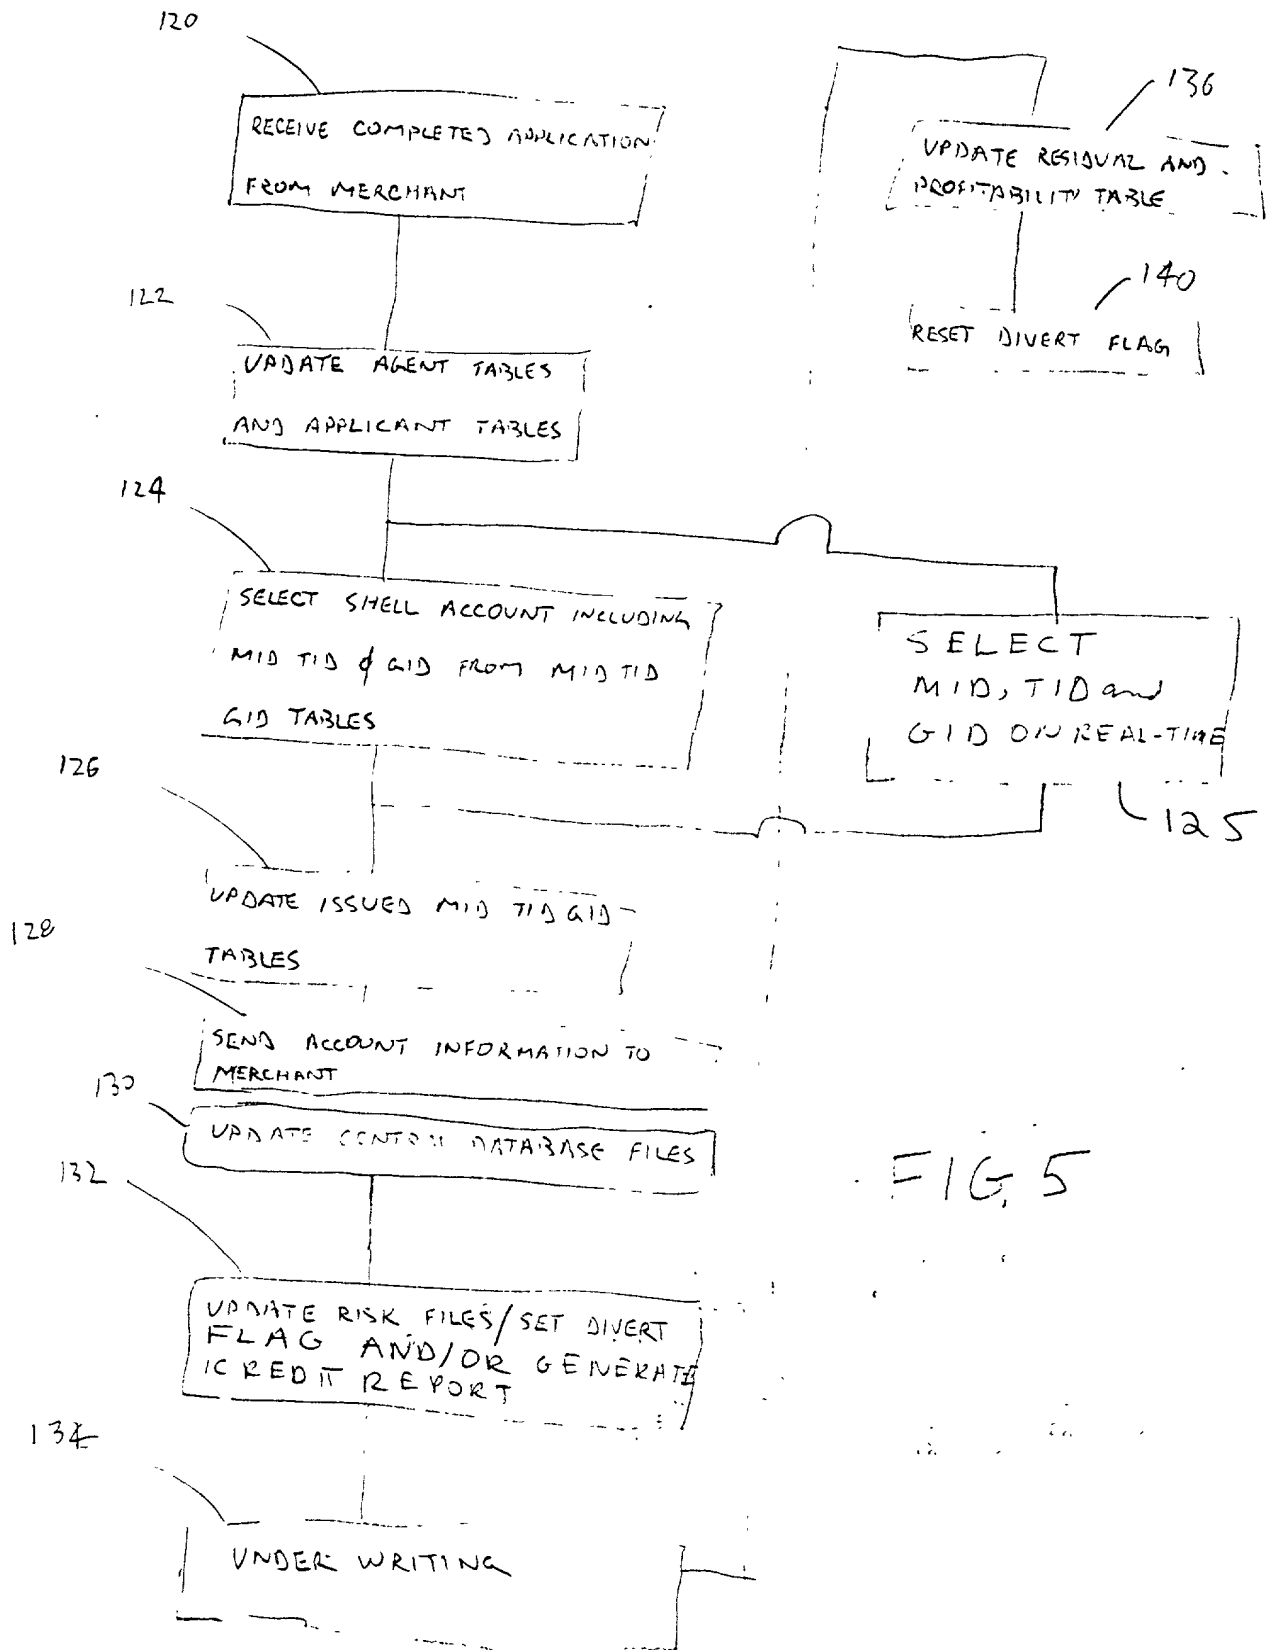 120
RECEIVE COMPLETED APPLICATION
FROM MERCHANT
122
UPDATE AGENT TABLES
AND APPLICANT TABLES
124
SELECT SHELL ACCOUNT INCLUDING
MID TID & GID FROM MID TID
GID TABLES
SELECT
MID, TID and
GID ON REAL-TIME
125
126
UPDATE ISSUED MID TID GID
TABLES
128
SEND ACCOUNT INFORMATION TO
MERCHANT
130
UPDATE CONTROL DATABASE FILES
132
UPDATE RISK FILES/SET DIVERT
FLAG AND/OR GENERATE
CREDIT REPORT
134
UNDER WRITING
136
UPDATE RESIDUAL AND
PROFITABILITY TABLE
140
RESET DIVERT FLAG
FIG. 5